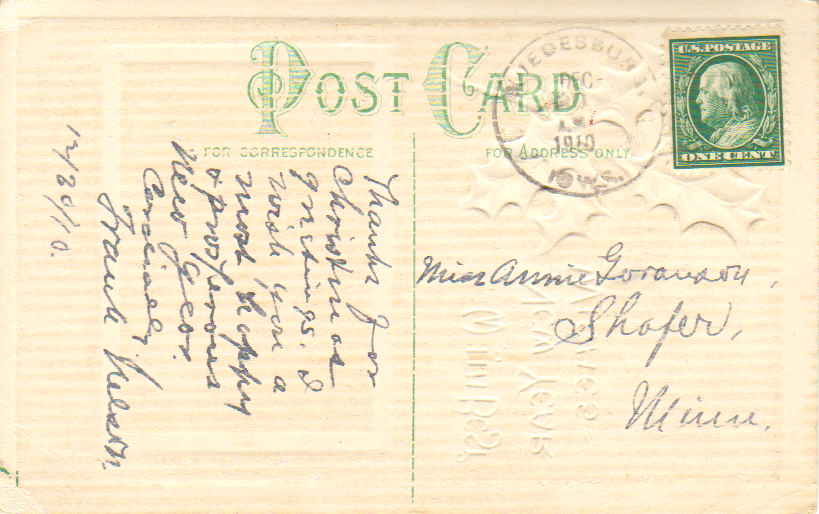 POST CARD
FOR CORRESPONDENCE
FOR ADDRESS ONLY
U.S. POSTAGE
ONE CENT
DEC
1910
Thanks for
Christmas
greetings. I
wish you a
most happy
& prosperous
New Year.
Cordially
Frank Nelson.
12/30/10.
Miss Annie Goranson,
Shafer,
Minn.